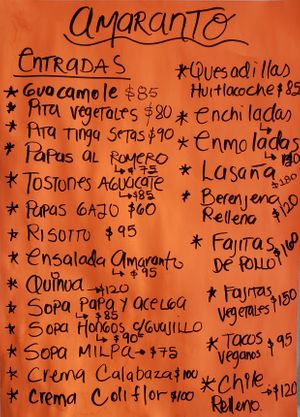 AMARANTO
ENTRADAS
* Guacamole $85
* Pita Vegetales $80
* Pita Tinga Setas $90
* Papas al Romero
↳ $75
* Tostones Aguacate
↳ $85
* Papas Gajo $60
* Risotto $95
* Ensalada Amaranto
↳ $95
* Quinua ↳ $120
* Sopa Papa y Acelga
↳ $85
* Sopa Hongos c/Guajillo
↳ $90
* Sopa Milpa → $75
* Crema Calabaza $100
* Crema Coliflor $100
* Quesadillas
Huitlacoche $85
* Enchiladas
* Enmoladas
* Lasaña
$180
* Berenjena
Rellena $120
* Fajitas
de Pollo $160
* Fajitas
Vegetales $150
* Tacos $95
Veganos
* Chile
Relleno $120